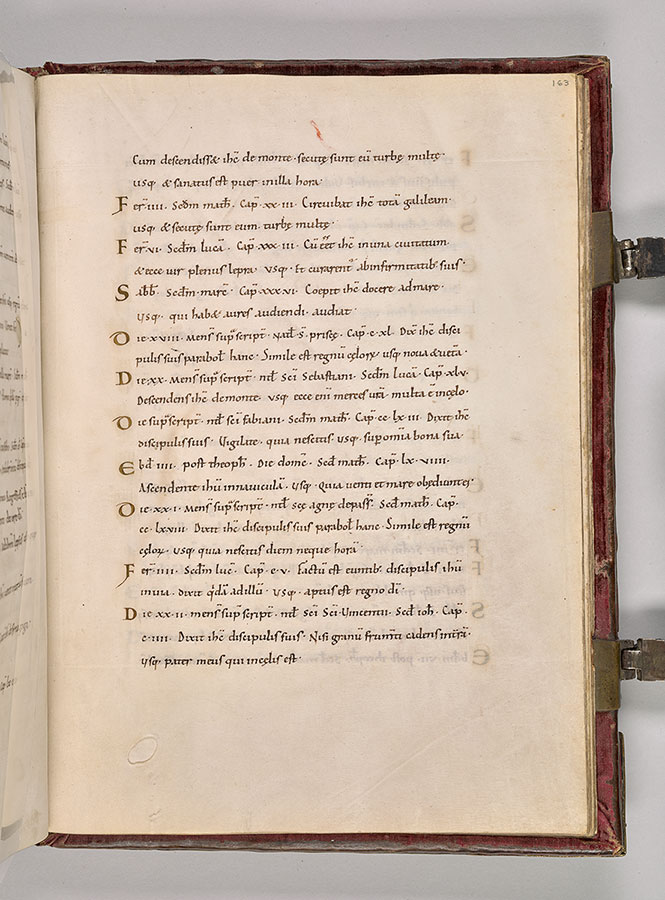 163
Cum descendiss& ihc̄ de monte · secutę sunt eū turbę multę ·
usq · & sanatus est puer in illa hora ·
Fer̄ · iiii · Sedm̄ math̄ · Cap̄ · xx · iii · Circuibat ihc̄ totā galileam ·
usq · & secutę sunt eum turbę multę ·
Fer̄ · vi · Sedm̄ lucā · Cap̄ · xxx · iii · Cū eēt ihc̄ in una civitatum
& ecce uir plenus lepra · usq · Et curarent᷑ ab infirmitatib; suis ·
Sabb̄ · Sedm̄ marc̄ · Cap̄ · xxx · vi · Coepit ihc̄ docere ad mare ·
usq · qui hab& aures audiendi · audiat ·
Die · xviii · mens̄ sup̄script̄ · Natl̄ s̄ · priscę · Cap̄ · c · xl · Dix̄ ihc̄ disci
pulis suis parabol̄ hanc · Simile est regnū cęlorȝ · usq · noua & uet̄a ·
Die · xx · mens̄ sup̄script̄ · ntl̄ sc̄i Sebastiani · Sedm̄ lucā · Cap̄ · xlv ·
Descendens ihc̄ de monte · usq · ecce eni merces urā multa ē in cęlo ·
Die sup̄script̄ · ntl̄ sc̄i fabiani · Sedm̄ math̄ · Cap̄ · cc · lx · iii · Dixit ihc̄
discipulis suis · Vigilate · quia nescitis · usq · sup omia bona sua ·
Ebd̄ · iiii · post theoph̄ · Die domc̄ · Secd̄ math̄ · Cap̄ · lx · viiii ·
Ascendente ihū in nauiculā · usq · Quia uenti et mare obediunt ei ·
Die · xx · i · mens̄ sup̄script̄ · ntl̄ sc̄ę agnę de pass̄ · Secd̄ math̄ · Cap̄ ·
cc · lxviii · Dixit ihc̄ discipulis suis parabol̄ hanc · Simile est regnū
cęlorȝ · usq · quia nescitis diem neque horā ·
Fer̄ · iiii · Sedm̄ luc̄ · Cap̄ · c · v · Factū est euntib; discipulis ihū
in uia · dixit qdā ad illū · usq · aptus est regno dī ·
Die · xx · ii · mens̄ sup̄script̄ · ntl̄ sc̄i Sc̄i Vincentii · Secd̄ ioh̄ · Cap̄ ·
c · iiii · Dixit ihc̄ discipulis suis · Nisi granū frum̄ti cadens in t̄rā ·
usq · pater meus qui in cęlis est ·